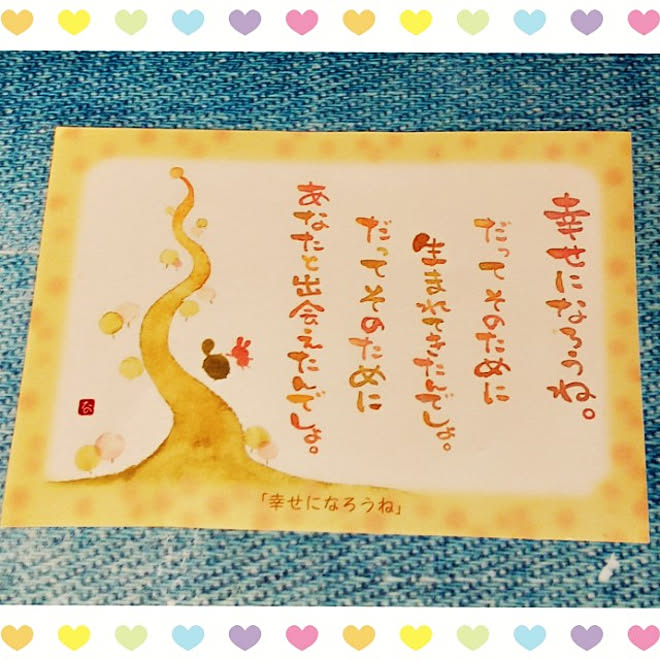 幸せになろうね。
だってそのために
生まれてきたんでしょ。
だってそのために
あなたと出会えたんでしょ。
「幸せになろうね」